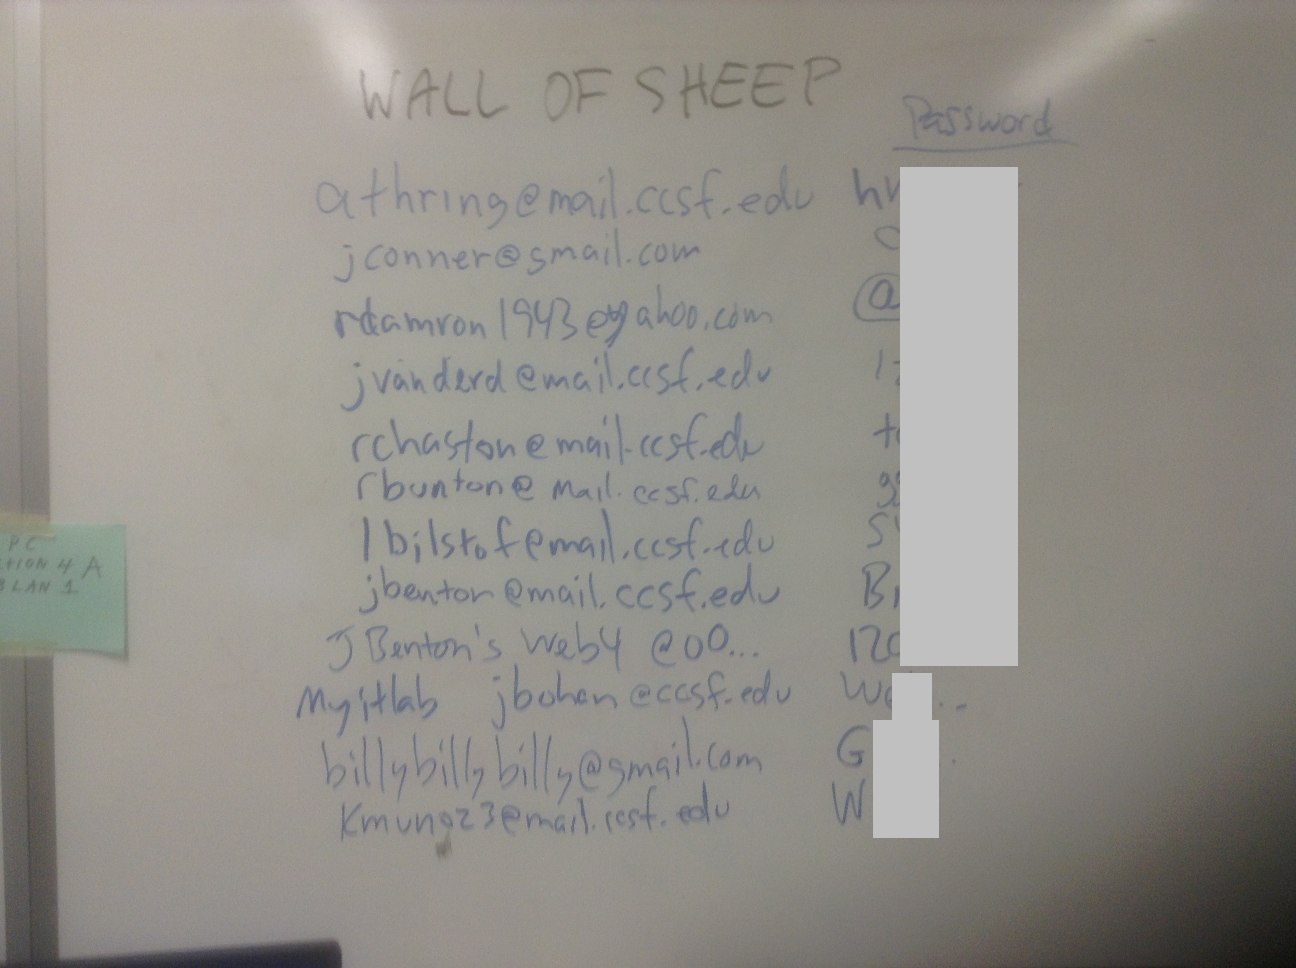 WALL OF SHEEP
Password
athring@mail.ccsf.edu h
jconner@gmail.com
rdamron1943@yahoo.com @
jvanderd@mail.ccsf.edu 1
rchaston@mail.ccsf.edu t
rbunton@mail.ccsf.edu g
lbilstof@mail.ccsf.edu S
jbenton@mail.ccsf.edu B
JBenton's Web4 @00... 120
Myitlab jbohan@ccsf.edu W ...
billybillybilly@gmail.com G .
Kmung23@mail.ccsf.edu W
PC
TION 4 A
LAN 1